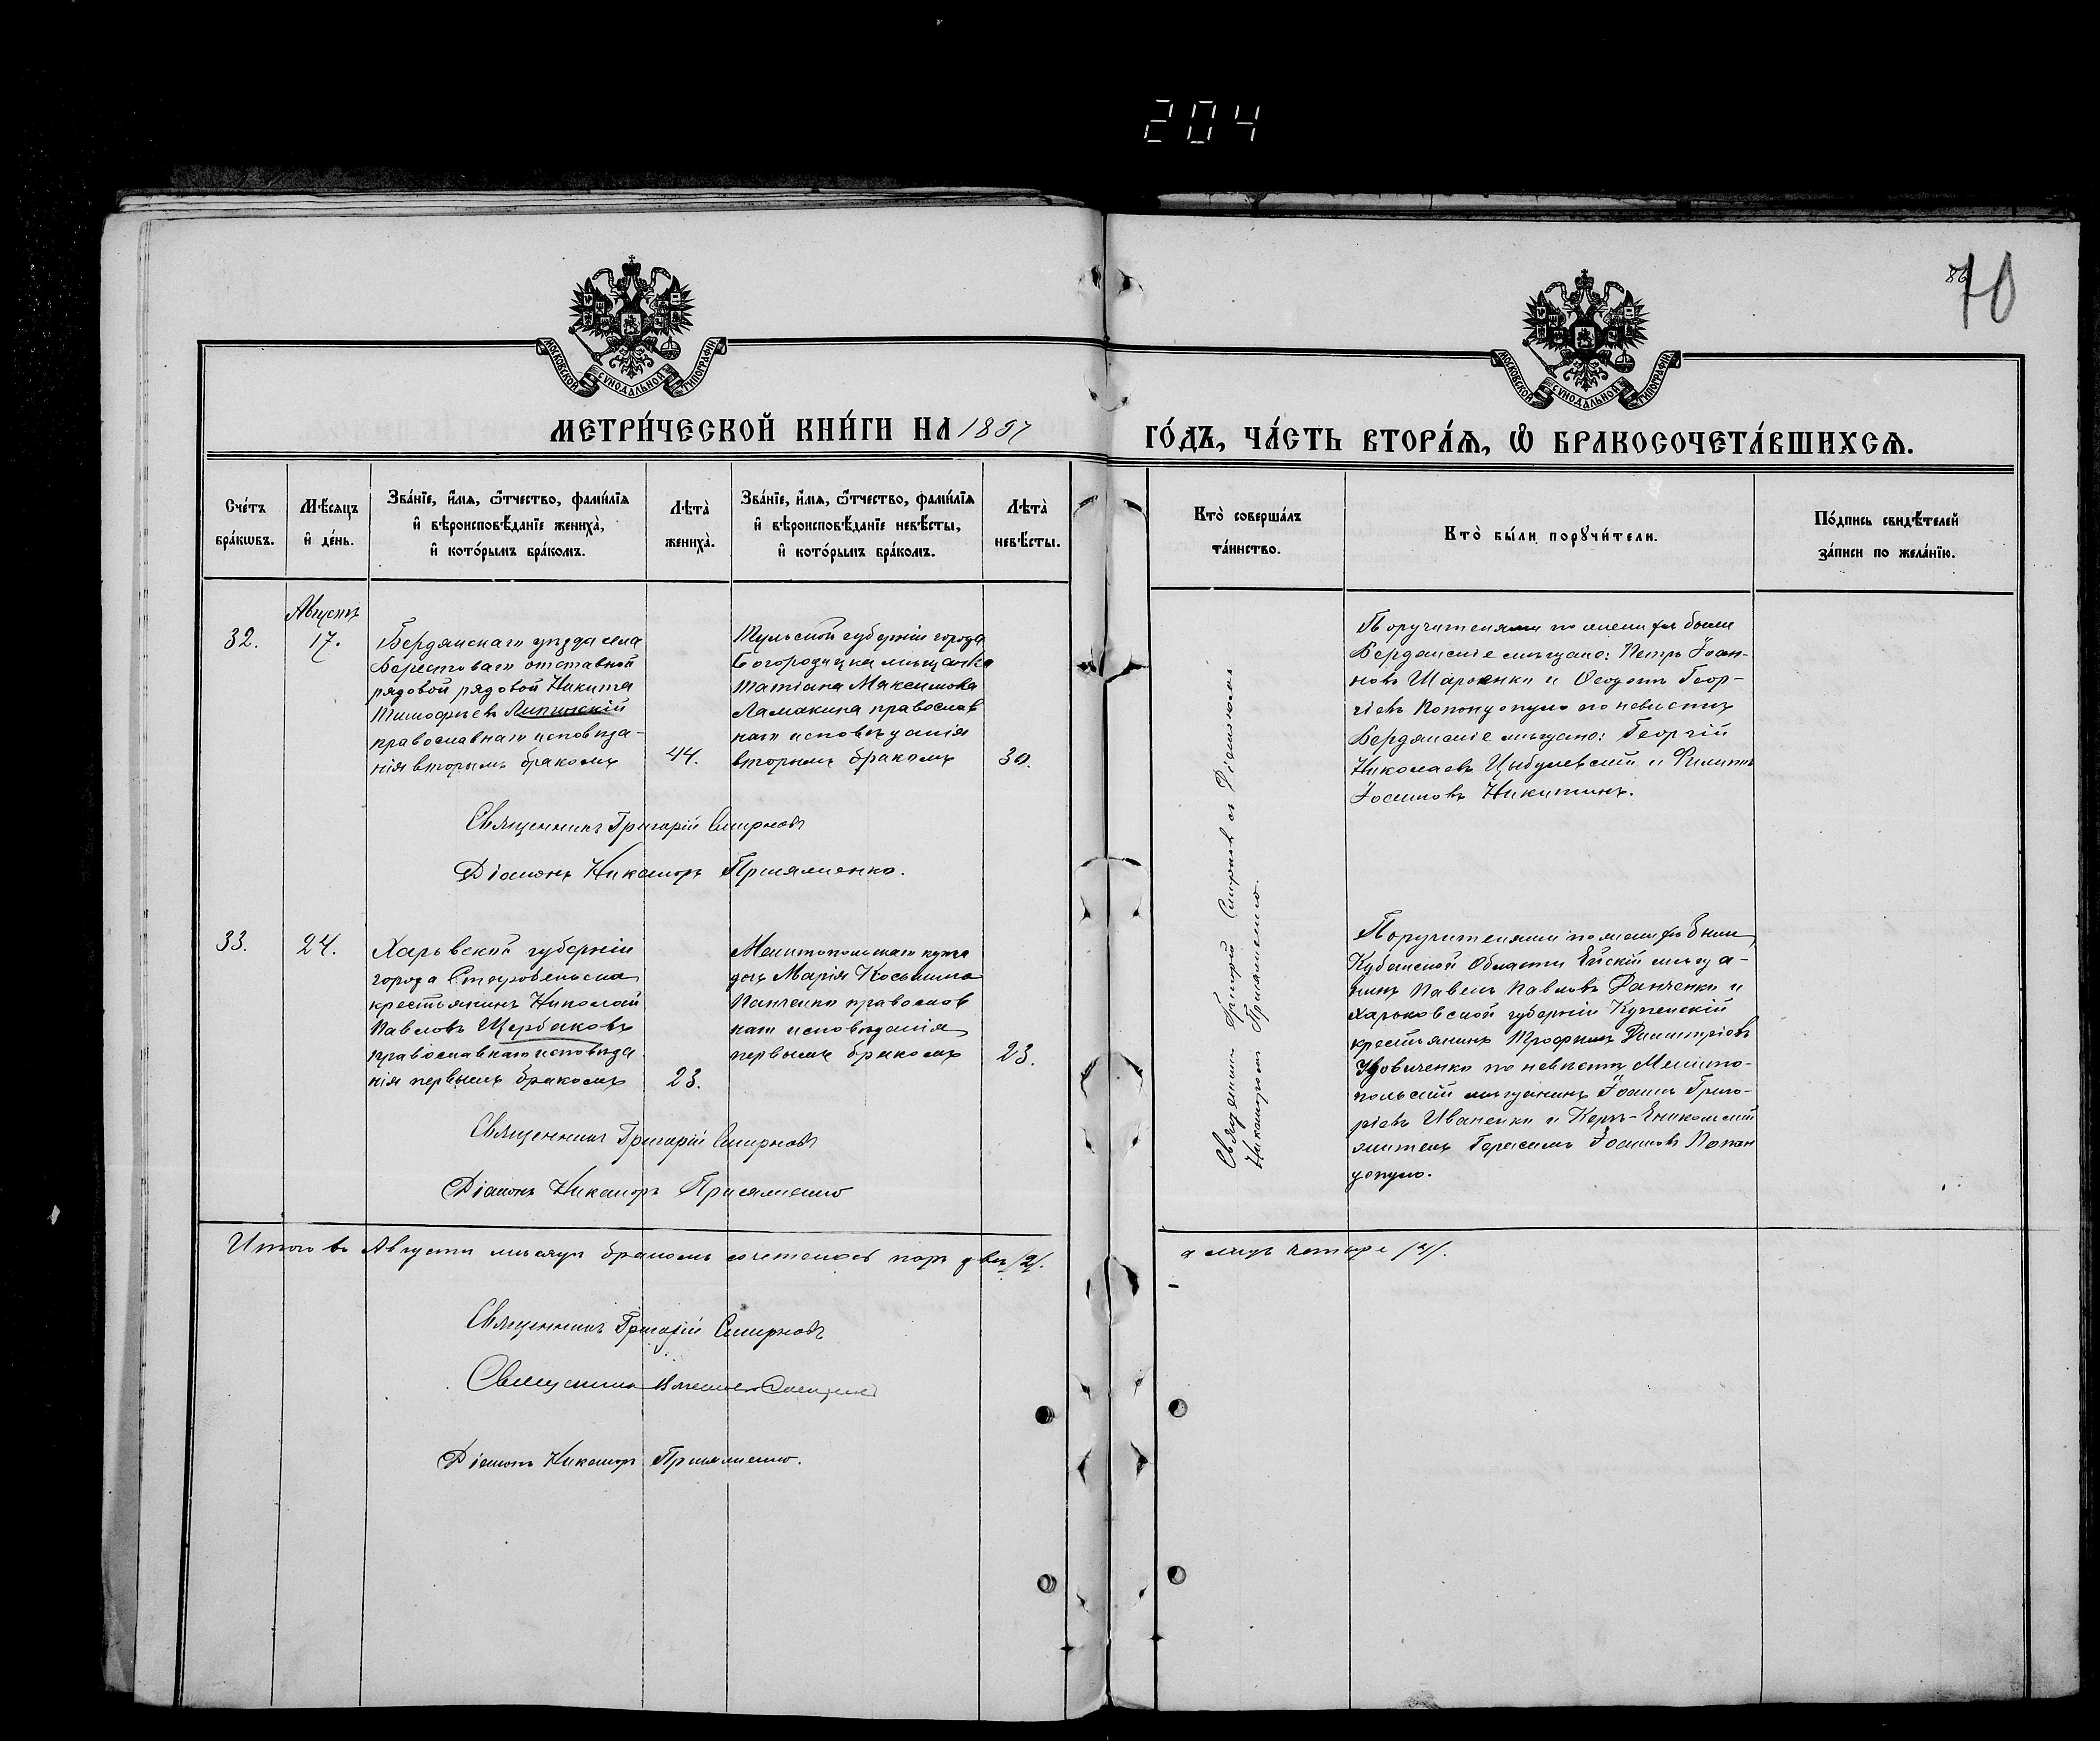 204
86
70
МОСКОВСКОЙ СУНОДАЛЬНОЙ ТИПОГРАФІИ
МОСКОВСКОЙ СУНОДАЛЬНОЙ ТИПОГРАФІИ
МЕТРИ́ЧЕСКОЙ КНИ́ГИ НА 1897
ГО́ДЪ, ЧА́СТЬ ВТОРА́Ѧ, Ѽ БРАКОСОЧЕТА́ВШИХСѦ.
Сче́тъ
бра́кѡвъ.
Мѣ́сяцъ
и҆ де́нь.
Зва́нїе, и҆́мя, ѻ҆́тчество, фами́лїя
и҆ вѣроисповѣ́данїе жениха̀,
и҆ кото́рымъ бра́комъ.
Лѣта̀
жениха̀.
Зва́нїе, и҆́мя, ѻ҆́тчество, фами́лїя
и҆ вѣроисповѣ́данїе невѣ́сты,
и҆ кото́рымъ бра́комъ.
Лѣта̀
невѣ́сты.
Кто̀ соверша́лъ
та́инство.
Кто̀ бы́ли порꙋчи́тели.
По́дпись свидѣ́телей
за́писи по жела́нїю.
Августъ
32.
17.
Бердянскаго уѣзда села
Берестоваго отставной
рядовой рядовой Никита
Тимофѣевъ Липинскій
православнаго исповѣда-
нія вторымъ бракомъ
44.
Тульской губерніи города
Богородицка мѣщанка
Татіана Максимова
Ламакина православ
наго исповѣданія
вторымъ бракомъ
30.
Поручителями по женихѣ были
Бердянскіе мѣщане: Петръ Іоан-
новъ и Ѳеодотъ Геор-
гіевъ по невѣстѣ
Бердянскіе мѣщане: Георгій
Николаевъ Цыбулевскій и Филиппъ
Іосифовъ Никитинъ.
Священникъ Григорій Смирновъ
Діаконъ Никаноръ Присяженко.
33.
24.
Харьвской губерніи
города Старобельска
крестьянинъ Николай
Павловъ Щербаковъ
православнаго исповѣда
нія первымъ бракомъ
23.
Мелитопольскаго купца
дочь Марія Косьмина
Панченко православ
наго исповѣданія
первымъ бракомъ
23.
Священникъ Григорій Смирновъ съ Діакономъ
Никаноромъ Присяженко.
Поручителями по женихѣ были
Кубанской Области Ейскій мѣща-
нинъ Павелъ Павловъ Панченко и
Харьковской губерніи Купенскій
крестьянинъ Трофимъ Димитріевъ
по невѣстѣ Мелито-
польскій мѣщанинъ Іоаннъ Григо-
ріевъ Иваненко и Керчь-Еникольскій
житель Герасимъ Іоанновъ Попан
допуло.
Священникъ Григорій Смирновъ
Діаконъ Никаноръ Присяженко
Итого въ Августѣ мѣсяцѣ бракомъ сочеталось паръ двѣ /2/.
а лицъ четыре /4/.
Священникъ Григорій Смирновъ
Священникъ
Діаконъ Никаноръ Присяженко.